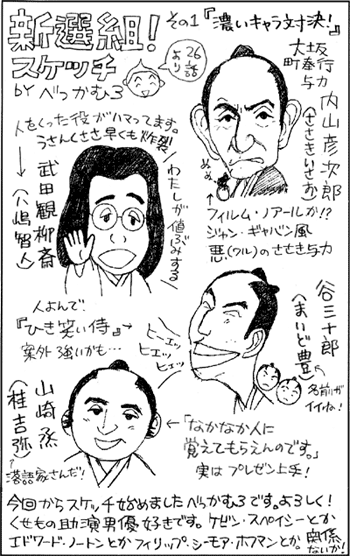 新選組!
スケッチ
byべっかむ3
その1『濃いキャラ対決!』
26話
より
大坂
町奉行
与力
内山彦次郎
(ささきいさお)
ぬめ
↑
フィルム・ノアールか!?
ジャン・ギャバン風
悪(ワル)のささき与力
人をくった役がハマってます。
うさんくささ早くも炸裂
↓
武田観柳斎
(八嶋智人)
わたしが値ぶみする
人よんで
『ひき笑い侍』→
案外強いかも…
ヒーエッ
ヒェッ
ヒェッ
谷三十郎
(まいど豊)
↑
名前が
イイね!
山崎烝
(桂吉弥)
↑
落語家さんだ!
←「なかなか人に
覚えてもらえんのです。」
実はプレゼン上手!
今回からスケッチ始めましたべっかむ3です。よろしく!
くせもの助演男優好きです。ケビン・スペイシーとか
エドワード・ノートンとかフィリップ・シーモア・ホフマンとか。関係
ないか!